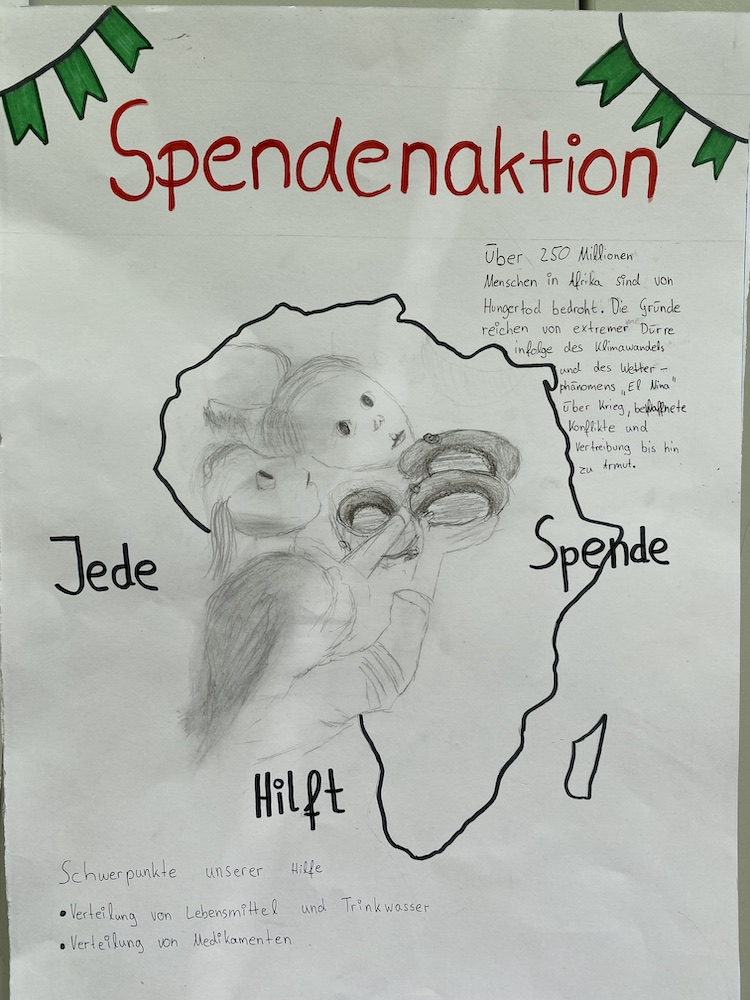 Spendenaktion
Über 250 Millionen
Menschen in Afrika sind von
Hungertod bedroht. Die Gründe
reichen von extremer Dürre
infolge des Klimawandels
und des Wetter-
phänomens „El Nina"
über Krieg, bewaffnete
Konflikte und
Vertreibung bis hin
zu Armut.
Jede
Spende
Hilft
Schwerpunkte unserer Hilfe
• Verteilung von Lebensmittel und Trinkwasser
• Verteilung von Medikamenten